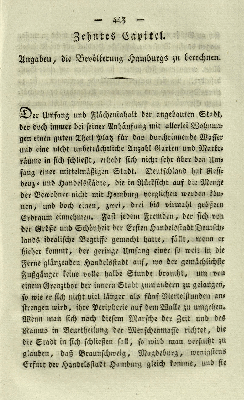 443
Zehntes Capitel.
Angaben, die Bevölkerung Hamburgs zu berechnen.
Der Umfang und Flächeninhalt der angebauten Stadt,
der doch immer bei seiner Anhäufung mit allerlei Wohnun-
gen einen guten Theil Platz für das durchströmende Wasser
und eine nicht unbeträchtliche Anzahl Garten und Märkte
räume in sich schließt, erhebt sich nicht sehr über den Um-
fang einer mittelmäßigen Stadt. Deutschland hat Resi-
denz- und Handelsstädte, die in Rücksicht auf die Menge
der Bewohner nicht mit Hamburg verglichen werden kön-
nen, und doch einen, zwei, drei bis viermahl größern
Erdraum einnehmen. Fast jedem Fremden, der sich von
der Größe und Schönheit der Ersten Handelsstadt Deutsch-
lands idealische Begriffe gemacht hatte, fällt, wenn er
hieher kommt, der geringe Umfang einer so weit in die
Ferne glänzenden Handelsstadt auf, wo der gemächlichste
Fußgänger keine volle halbe Stunde braucht, um von
einem Grenzthor der innern Stadt zum andern zu gelangen,
so wie er sich nicht viel länger als fünf Viertelstunden an-
strengen muß, ihre Peripherie auf dem Walle zu umgehen.
Wenn man sich nach diesem Maaße der Zeit und des
Raums in Beurtheilung der Menschenmasse richtet, die
die Stadt in sich schließen soll, so wird man versucht zu
glauben, daß Braunschweig, Magdeburg, wenigstens
Erfurt der Handelsstadt Hamburg gleich komme, und sie